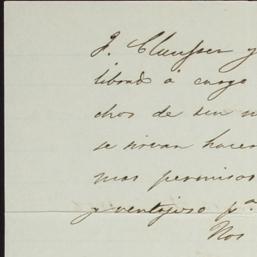 J. Clausser y
librado á cargo
chos de su
se sirvan hacer
mas permisos
y ventajoso pª
Nos